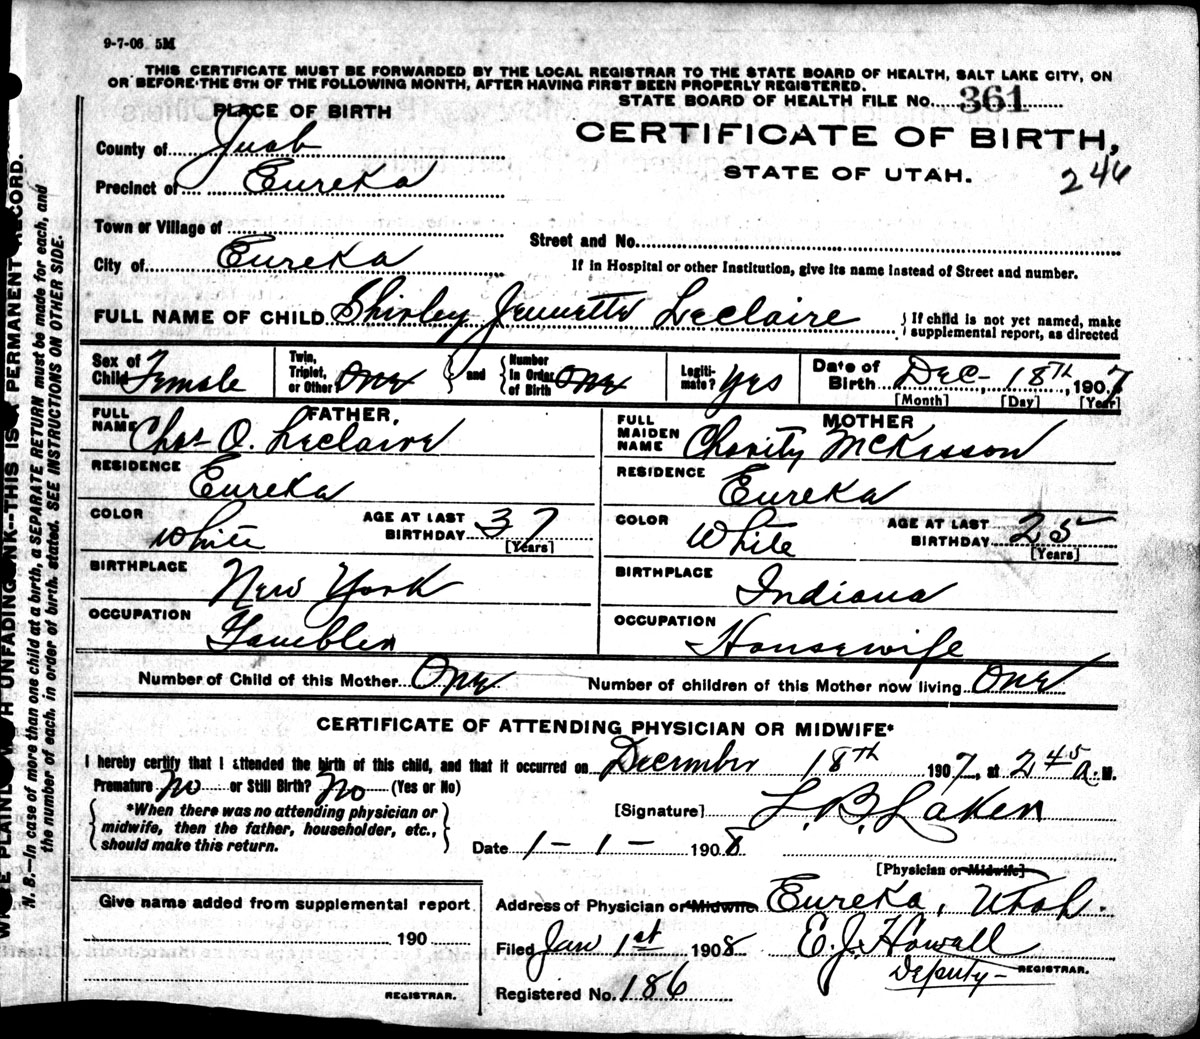 9-7-06 5M
THIS CERTIFICATE MUST BE FORWARDED BY THE LOCAL REGISTRAR TO THE STATE BOARD OF HEALTH, SALT LAKE CITY, ON
OR BEFORE THE 5TH OF THE FOLLOWING MONTH, AFTER HAVING FIRST BEEN PROPERLY REGISTERED.
STATE BOARD OF HEALTH FILE NO. 361
PLACE OF BIRTH
CERTIFICATE OF BIRTH,
STATE OF UTAH.
246
County of Juab
Precinct of Eureka
Town or Village of
Street and No.
City of Eureka
If in Hospital or other Institution, give its name instead of Street and number.
FULL NAME OF CHILD Shirley Jennette Leclaire { If child is not yet named, make supplemental report, as directed
Sex of Child Female
Twin, Triplet, or Other One } and { Number in Order of Birth One
Legitimate? Yes
Date of Birth Dec. 18th, 1907
[Month] [Day] [Year]
FATHER.
FULL NAME Chas O. Leclaire
RESIDENCE Eureka
COLOR White
AGE AT LAST BIRTHDAY 37
[Years]
BIRTHPLACE New York
OCCUPATION Gambler
MOTHER
FULL MAIDEN NAME Charity McKisson
RESIDENCE Eureka
COLOR White
AGE AT LAST BIRTHDAY 25
[Years]
BIRTHPLACE Indiana
OCCUPATION Housewife
Number of Child of this Mother One
Number of children of this Mother now living One
CERTIFICATE OF ATTENDING PHYSICIAN OR MIDWIFE*
I hereby certify that I attended the birth of this child, and that it occurred on December 18th 1907, at 2 45 A. M.
Premature No or Still Birth? No (Yes or No)
{ *When there was no attending physician or
midwife, then the father, householder, etc.,
should make this return. }
[Signature] L. B. Laker
Date 1-1-1908
[Physician or Midwife]
Give name added from supplemental report
190
REGISTRAR.
Address of Physician or Midwife Eureka, Utah.
Filed Jan 1st 1908 E. J. Howall
Deputy- REGISTRAR.
Registered No. 186
N. B.—In case of more than one child at a birth, a SEPARATE RETURN must be made for each, and
the number of each, in order of birth, stated. SEE INSTRUCTIONS ON OTHER SIDE.